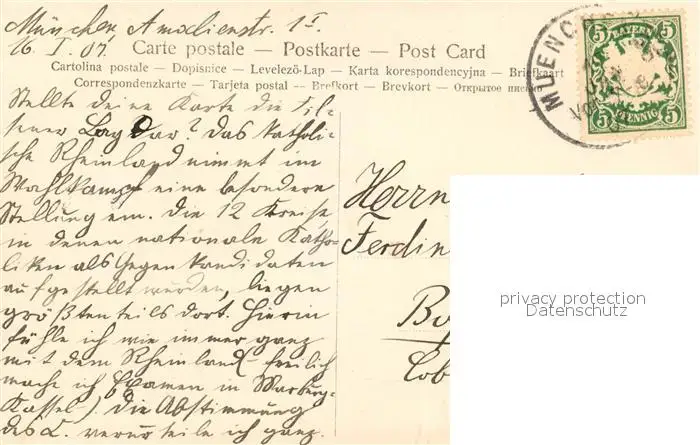 München, Amalienstr. 1 I.
16. I. 07.
Carte postale — Postkarte — Post Card
Cartolina postale — Dopisnice — Levelező-Lap — Karta korespondencyjna — Briefkaart
Correspondenzkarte — Tarjeta postal — Brefkort — Brevkort — Открытое письмо
Stellte deine Karte die
Lage dar? Das katholi-
sche Rheinland nimmt im
Wahlkampf eine besondere
Stellung ein. Die 12 Kreise,
in denen nationale Katho-
liken als Gegenkandidaten
aufgestellt wurden, liegen
größtenteils dort. Hierin
fühle ich wie immer ganz
mit dem Rheinland (freilich
mache ich Examen in Marburg-
Kassel-). Die Abstimmung
des L. verurteile ich ganz.
MUENCH
5 BAYERN 5
5 PFENNIG 5
Herrn
Ferdin
Bo
Cob
privacy protection
Datenschutz